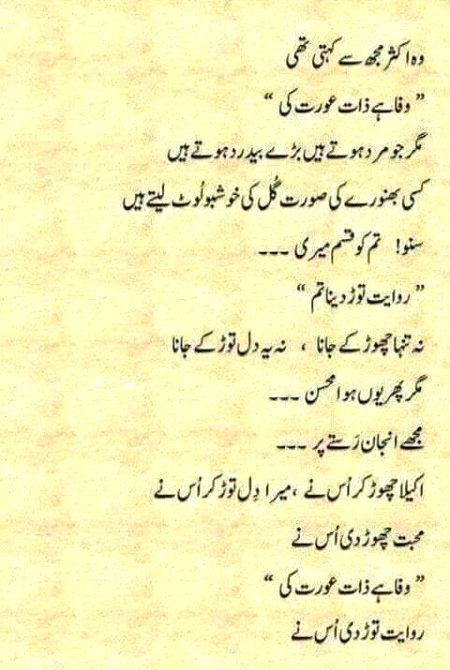 وہ اکثر مجھ سے کہتی تھی
” وفا ہے ذات عورت کی “
مگر جو مرد ہوتے ہیں بڑے بیدرد ہوتے ہیں
کسی بھنورے کی صورت گُل کی خوشبو لُوٹ لیتے ہیں
سنو! تم کو قسم میری ۔۔۔
” روایت توڑ دینا تم “
نہ تنہا چھوڑ کے جانا ، نہ یہ دل توڑ کے جانا
مگر پھر یوں ہوا محسن ۔۔۔
مجھے انجان رَستے پر ۔۔۔
اکیلا چھوڑ کر اُس نے ، میرا دِل توڑ کر اُس نے
محبت چھوڑ دی اُس نے
” وفا ہے ذات عورت کی “
روایت توڑ دی اُس نے